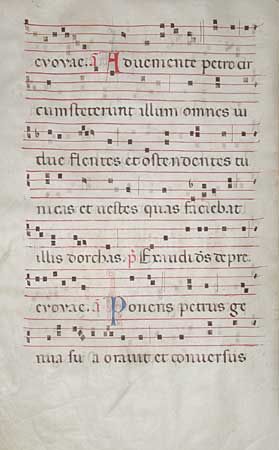 evovae. a Adveniente petro cir
cumsteterunt illum omnes vi
due flentes et ostendentes tu
nicas et vestes quas faciebat
illis dorchas. p Exaudi ds depre.
evovae. a Ponens petrus ge
nua sua oravit et conversus